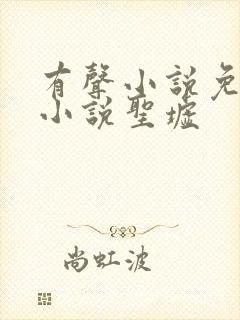 有聲小說免
小說聖墟
尚虹波